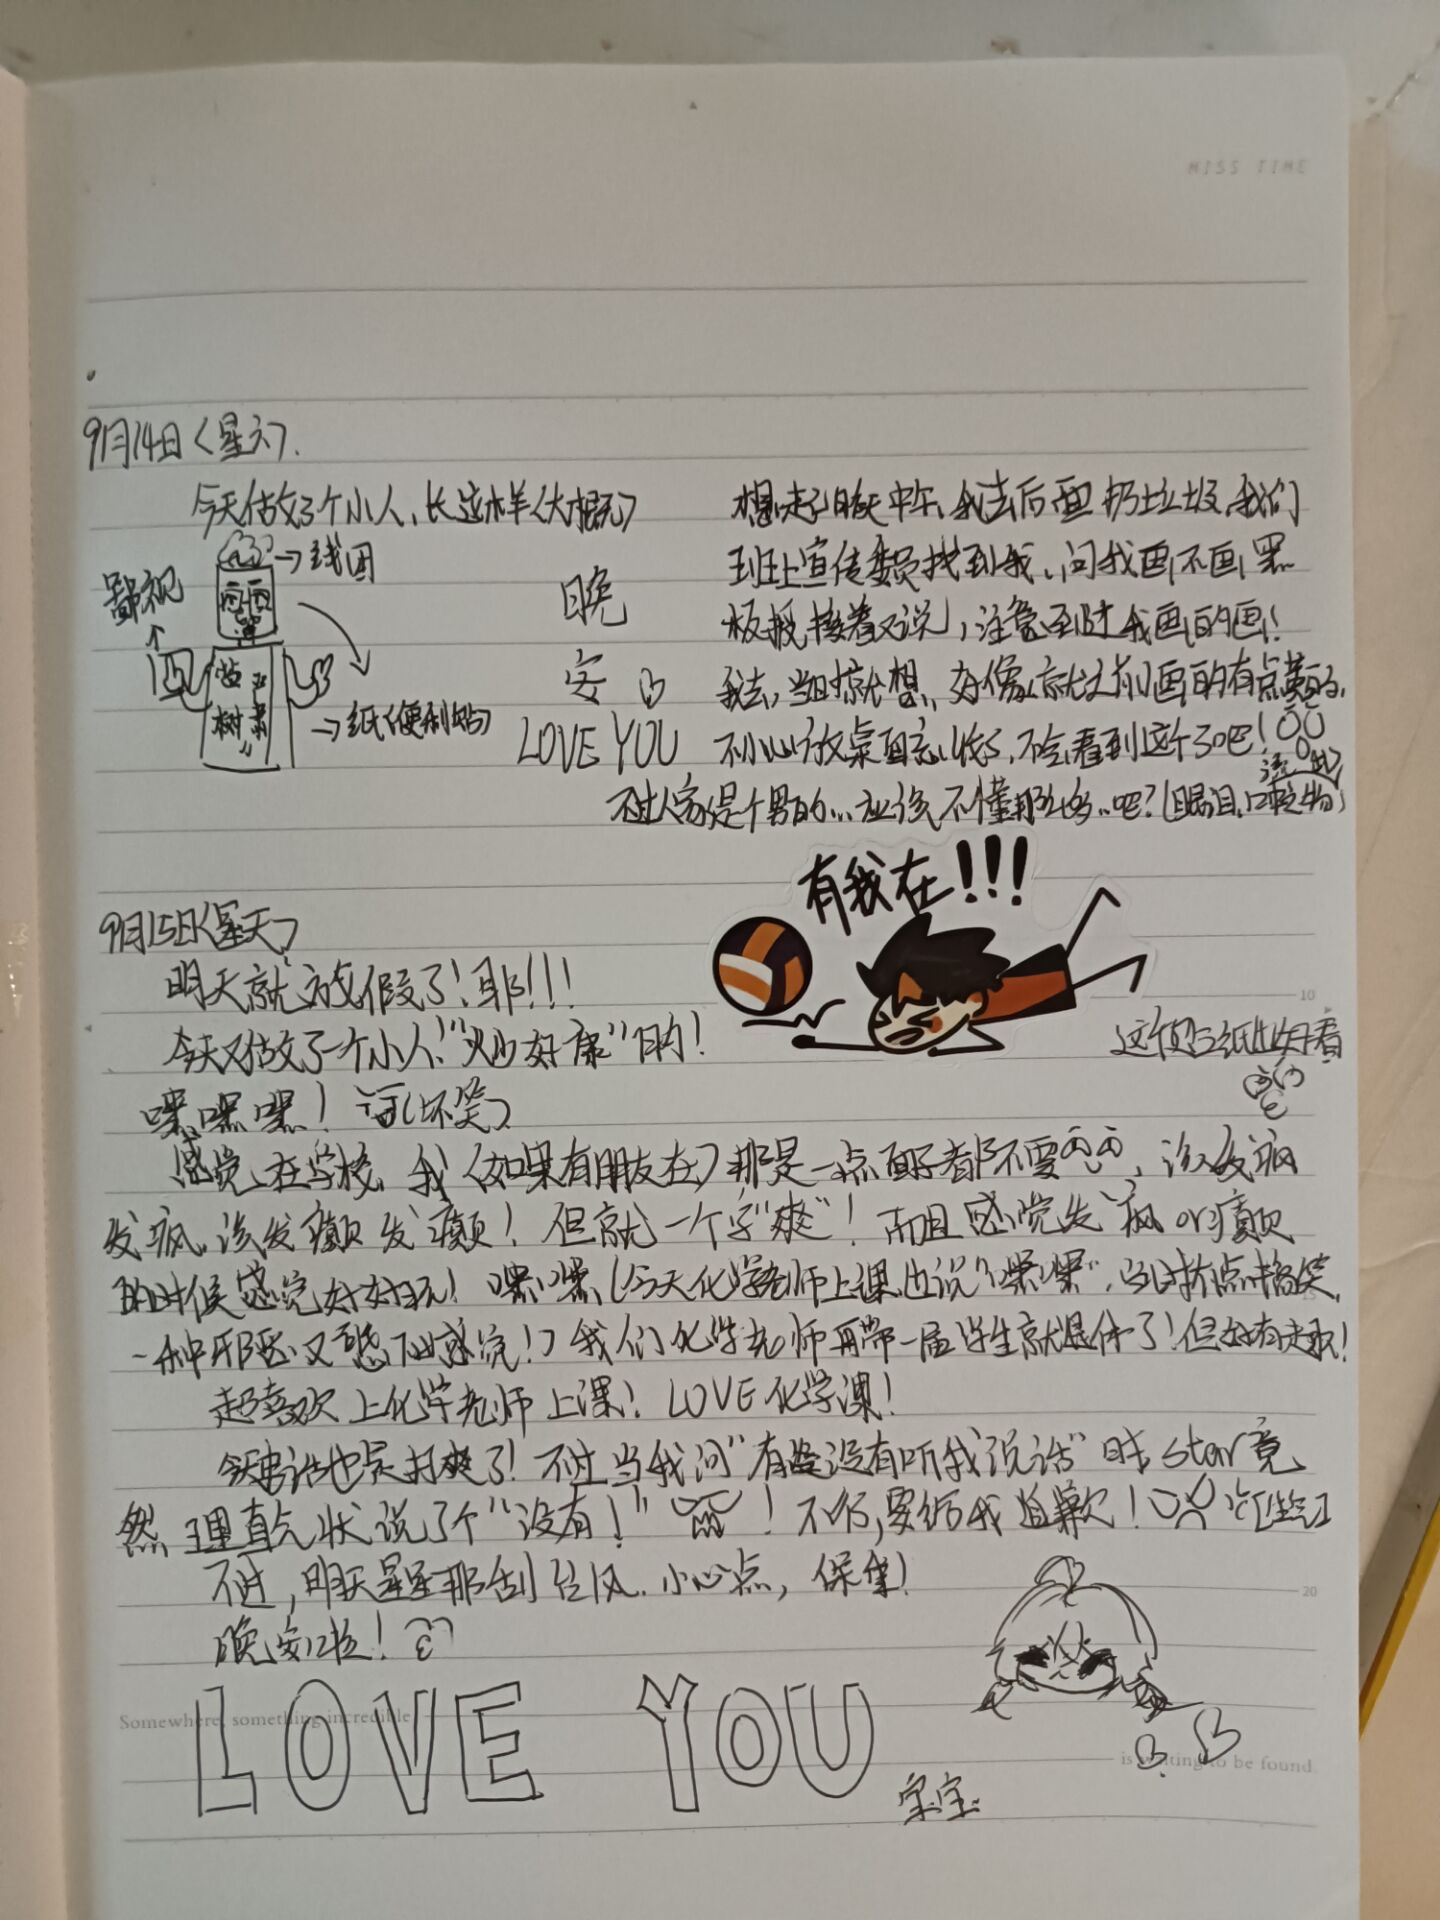 MISS TIME
9月14日(星六).
今天估做了个小人,长这样(大概)
→线团
鄙视
→纸(便利贴)
晚
安
LOVE YOU
想起昨天中午,我去后面扔垃圾,我们
班上宣传委员找到我,问我画不画黑
板报,接着又说,注意到过我画的画!
我去,当时就想,好像就之前画的有点
不小心放桌面忘收了,不会看到这个了吧!
不过人家是个男的...应该不懂那么多..吧?(
有我在!!!
9月15日(星天)
明天就放假了!耶!!!
今天又估做了一个小人!"火山好康"的!
嘿嘿嘿! (坏笑)
感觉,在学校,我(如果有朋友在)那是一点面子都不要,该发疯
发疯,该发癫发癫!但就一个字"爽"!而且感觉发疯or癫
的时候感觉好好玩!嘿嘿(今天化学老师上课也说"嘿嘿",当时有点搞笑,
一种邪恶又 感觉!)我们化学老师再带一届学生就退休了!但好有趣!
超喜欢上化学老师上课!LOVE化学课!
今天 不过当我问"有没有听我说话"时star竟
然理直气状说了个"没有!" !不行,要给我道歉!
不过,明天星星那刮台风.小心点,保重!
晚安啦!
LOVE YOU
Somewhere, something incredible
is waiting to be found.
宝宝
10
20